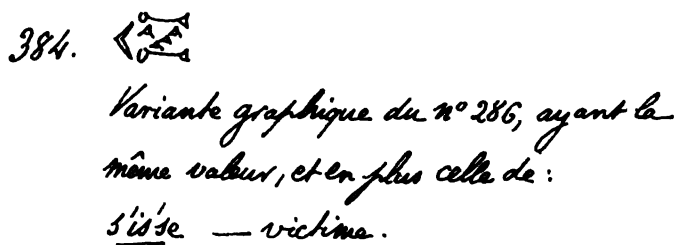 384.
Variante graphique du n° 286, ayant la
même valeur, et en plus celle de :
s'is'se — victime.